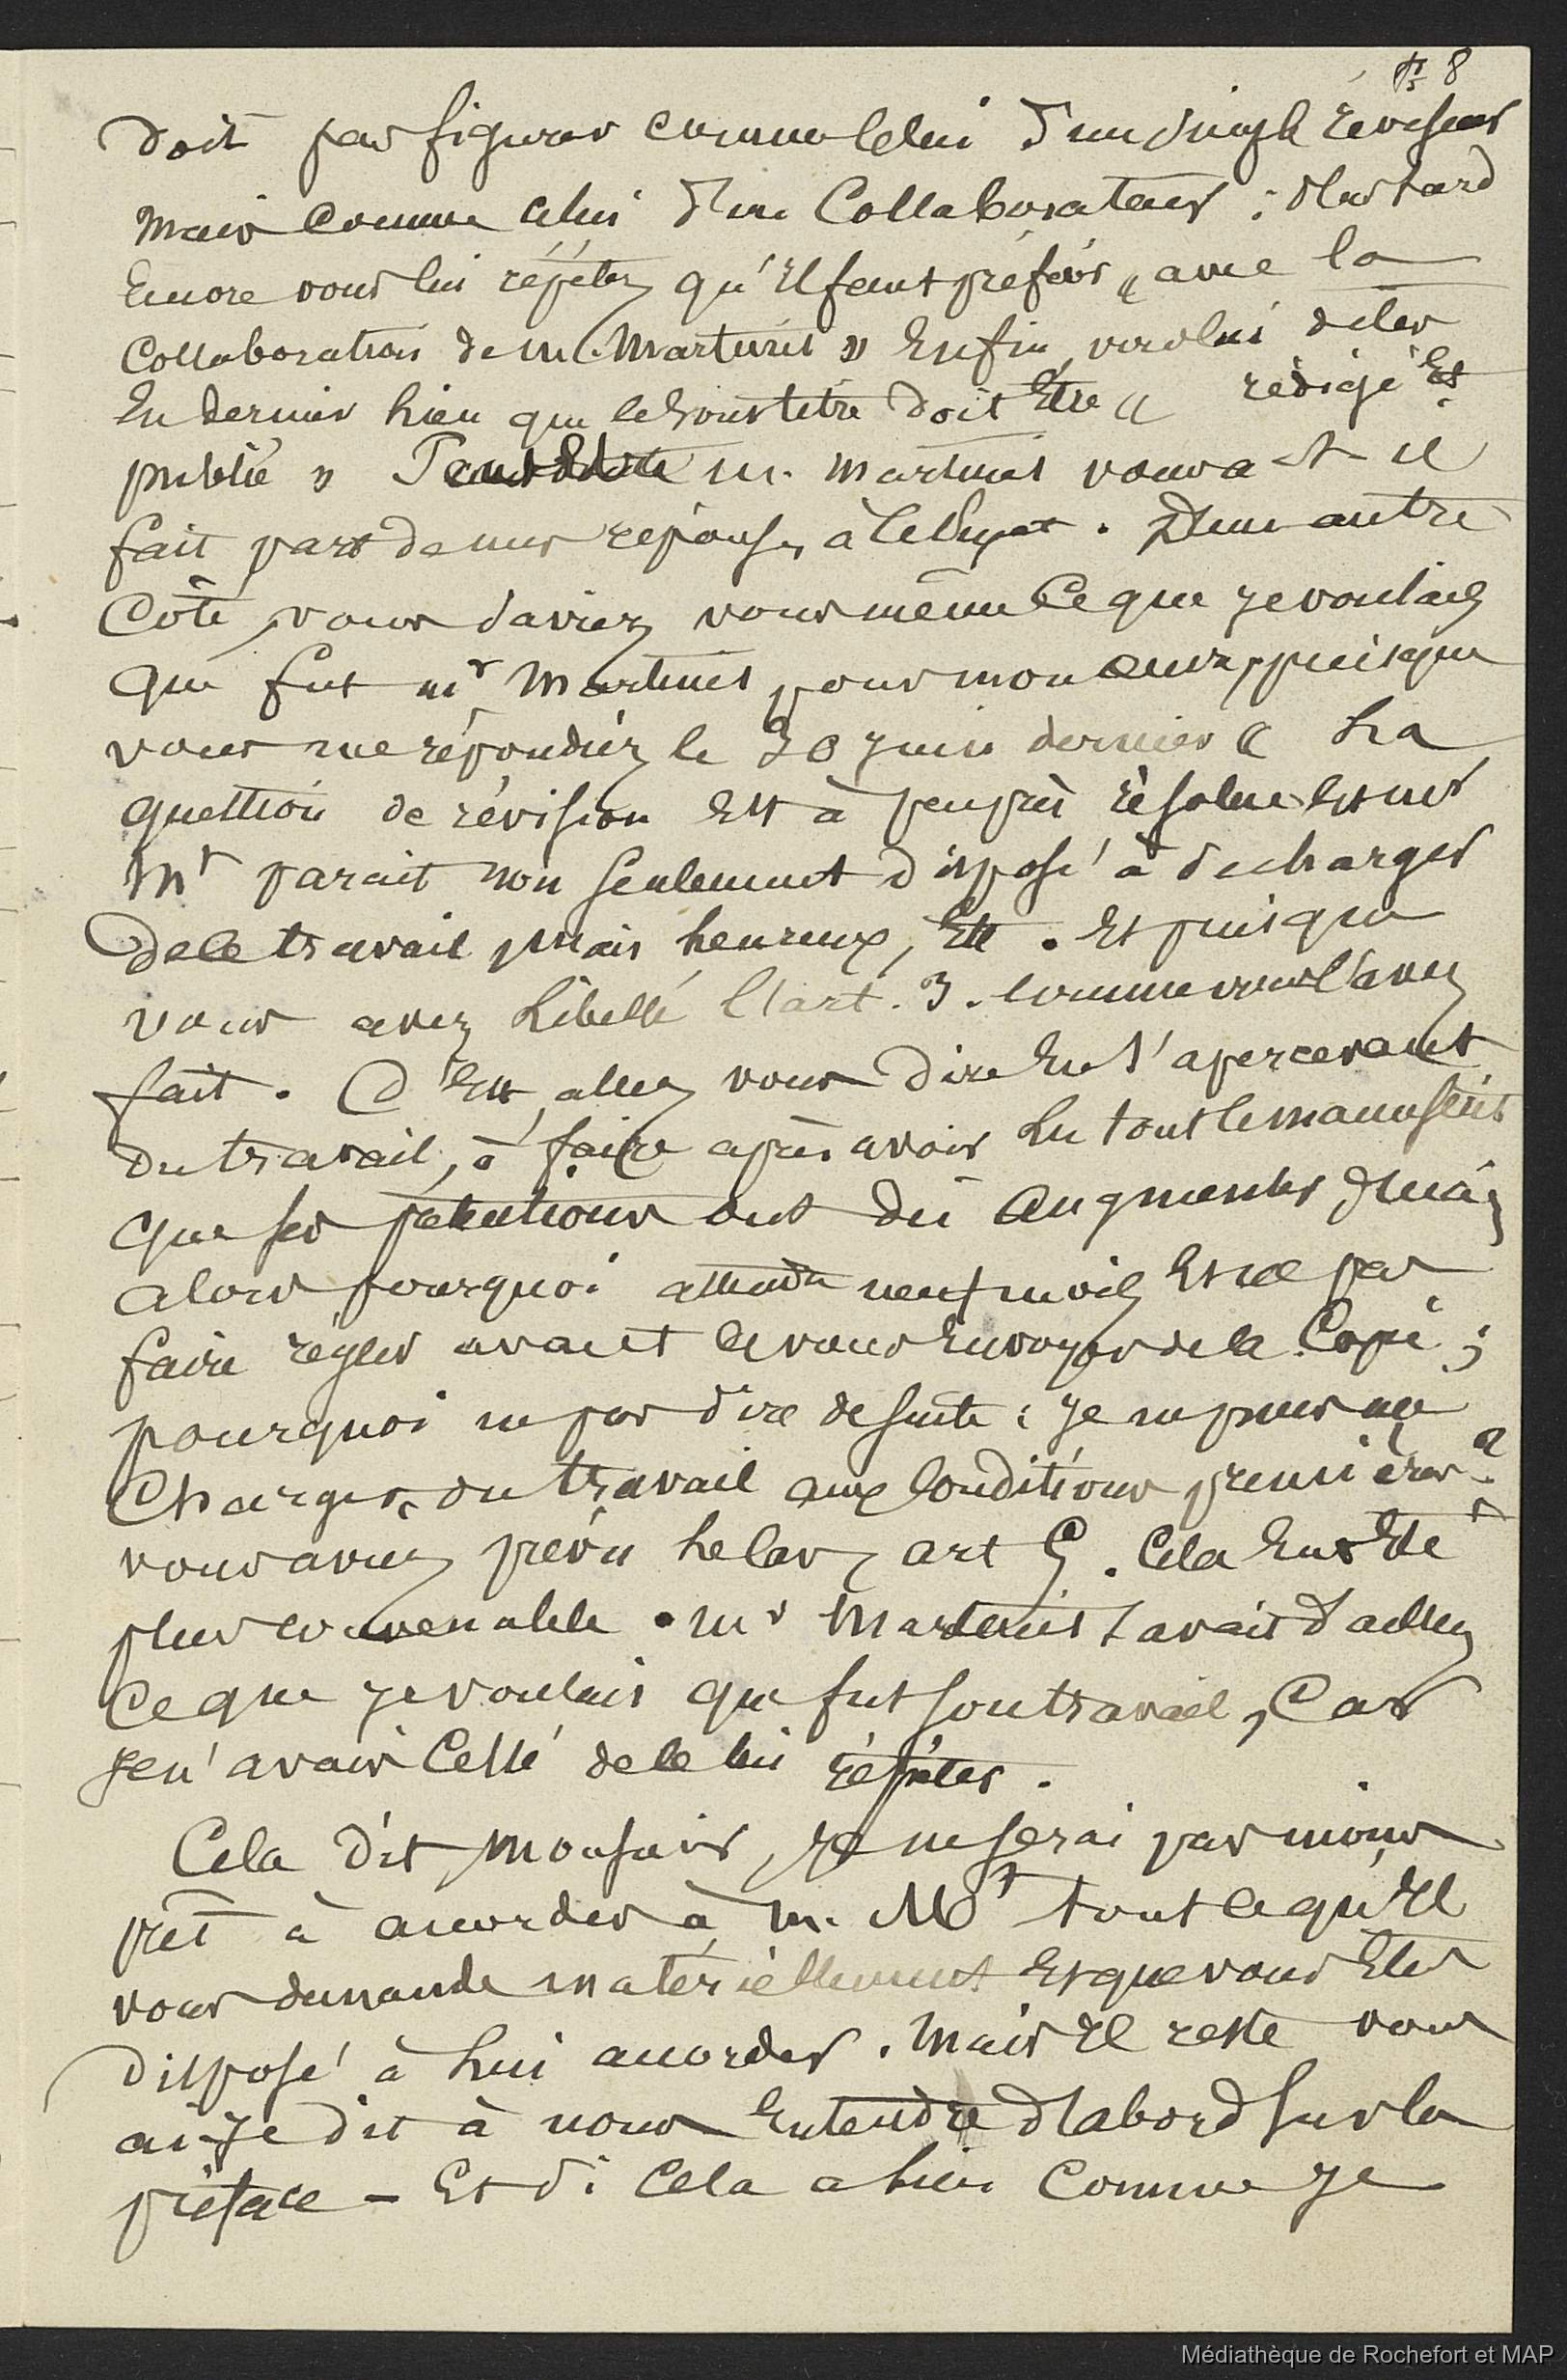 8
doit pas figurer comme celui d'un simple réviseur
mais comme celui d'un Collaborateur ; plus tard
Encore vous lui répétez qu'il faut préférer « avec la
Collaboration de M. Martinet » Enfin, vous lui dites
En dernier lieu que le sous titre doit Etre « rédigé Et
publié » M. Martinet vous a-t-il
fait part de mes réponses à ce sujet. D'un autre
Côté, vous saviez vous même Ce que je voulais
que fut Mr Martinet pour mon œuvre, puisque
vous me répondiez le 30 juin dernier « La
question de révision Est à peu près résolue
Mt parait non seulement disposé à se charger
de ce travail mais heureux, Etc. Et puisque
vous avez Libellé l'art. 3. comme vous l'avez
fait. C'Est, allez vous dire En s'apercevant
du travail, à faire après avoir Lu tout le manuscrit
que ses prétentions ont dû augmenter, mais
alors pourquoi attendre neuf mois Et ne pas
faire régler avant de vous Envoyer de la Copie ;
pourquoi ne pas dire de suite : je ne puis me
Charger du travail aux Conditions premières ?
vous aviez prévu le cas, art 5. Cela Eut Eté
plus convenable. Mr Martinet savait d'ailleurs
Ce que je voulais que fut son travail, Car
je n'avais Cessé de le lui répéter.
Cela dit, Monsieur, je ne serai pas moins
prêt à accorder à M. Mt tout ce qu'Il
vous demande matériellement Et que vous Etes
disposé à Lui accorder. Mais Il reste vous
ai-je dit à nous Entendre d'abord sur la
préface — Et si Cela a lieu Comme je
Médiathèque de Rochefort et MAP